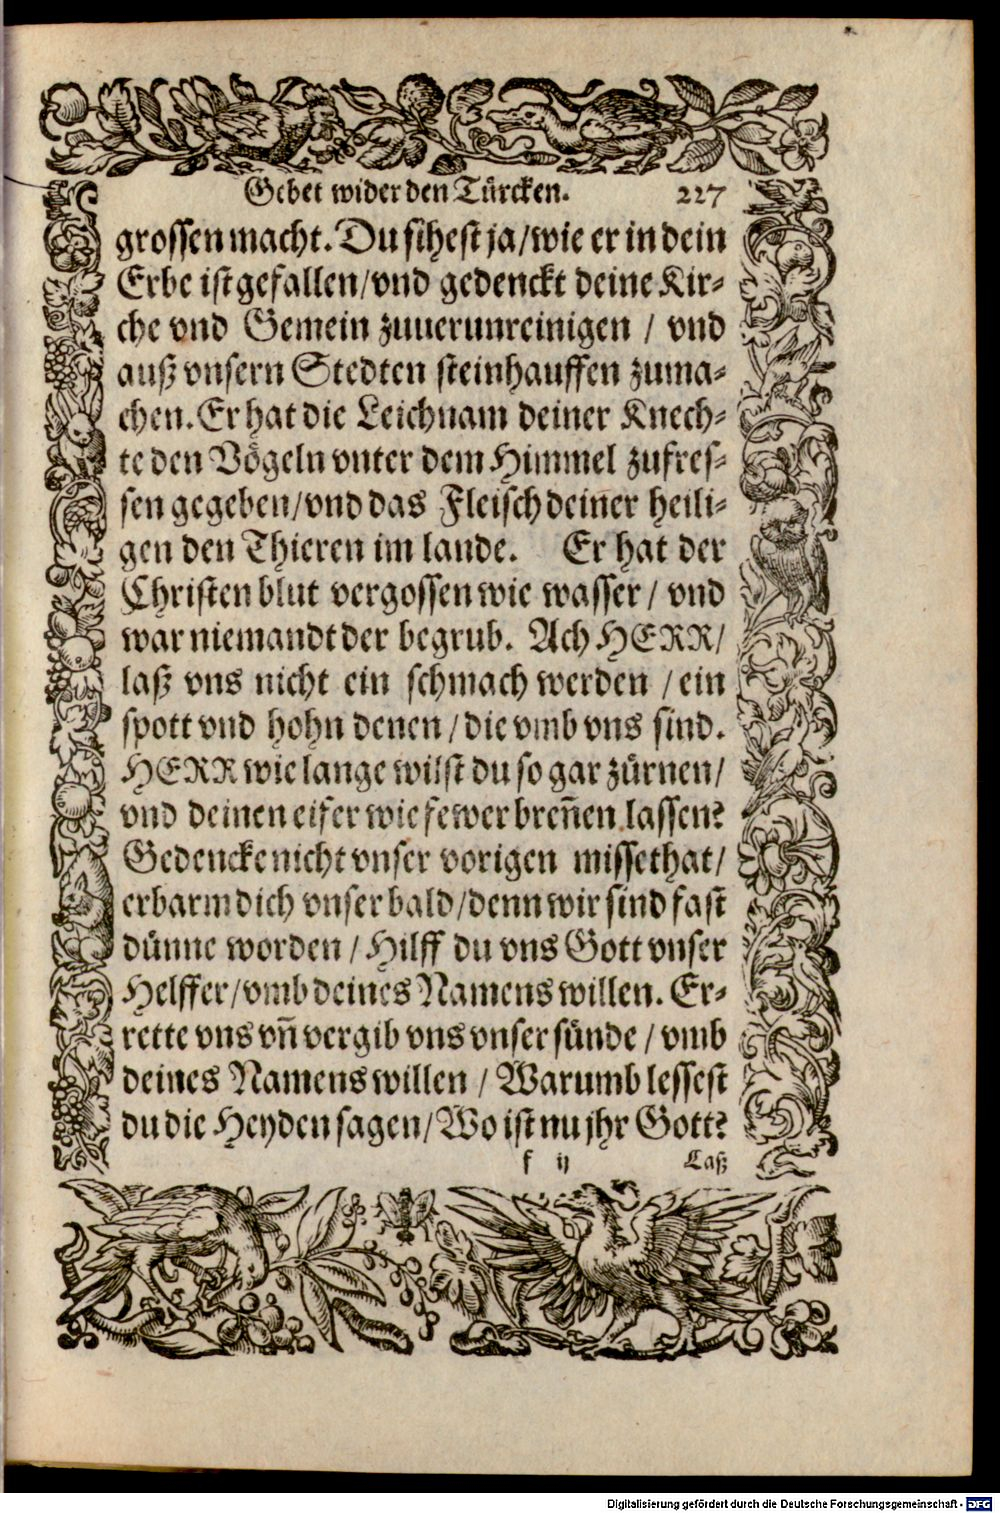 Gebet wider den Türcken. 227
grossen macht. Du sihest ja/wie er in dein
Erbe ist gefallen/vnd gedenckt deine Kir-
che vnd Gemein zuuerunreinigen / vnd
auß vnsern Stedten steinhauffen zuma-
chen. Er hat die Leichnam deiner Knech-
te den Vögeln vnter dem Himmel zufres-
sen gegeben/vnd das Fleisch deiner heili-
gen den Thieren im lande. Er hat der
Christen blut vergossen wie wasser / vnd
war niemandt der begrub. Ach HERR/
laß vns nicht ein schmach werden / ein
spott vnd hohn denen / die vmb vns sind.
HERR wie lange wilst du so gar zürnen/
vnd deinen eifer wie fewer breñen lassen?
Gedencke nicht vnser vorigen missethat/
erbarm dich vnser bald/denn wir sind fast
dünne worden / Hilff du vns Gott vnser
Helffer/vmb deines Namens willen. Er-
rette vns vñ vergib vns vnser sünde / vmb
deines Namens willen / Warumb lessest
du die Heyden sagen/Wo ist nu jhr Gott?
f ij Laß
Digitalisierung gefördert durch die Deutsche Forschungsgemeinschaft - DFG